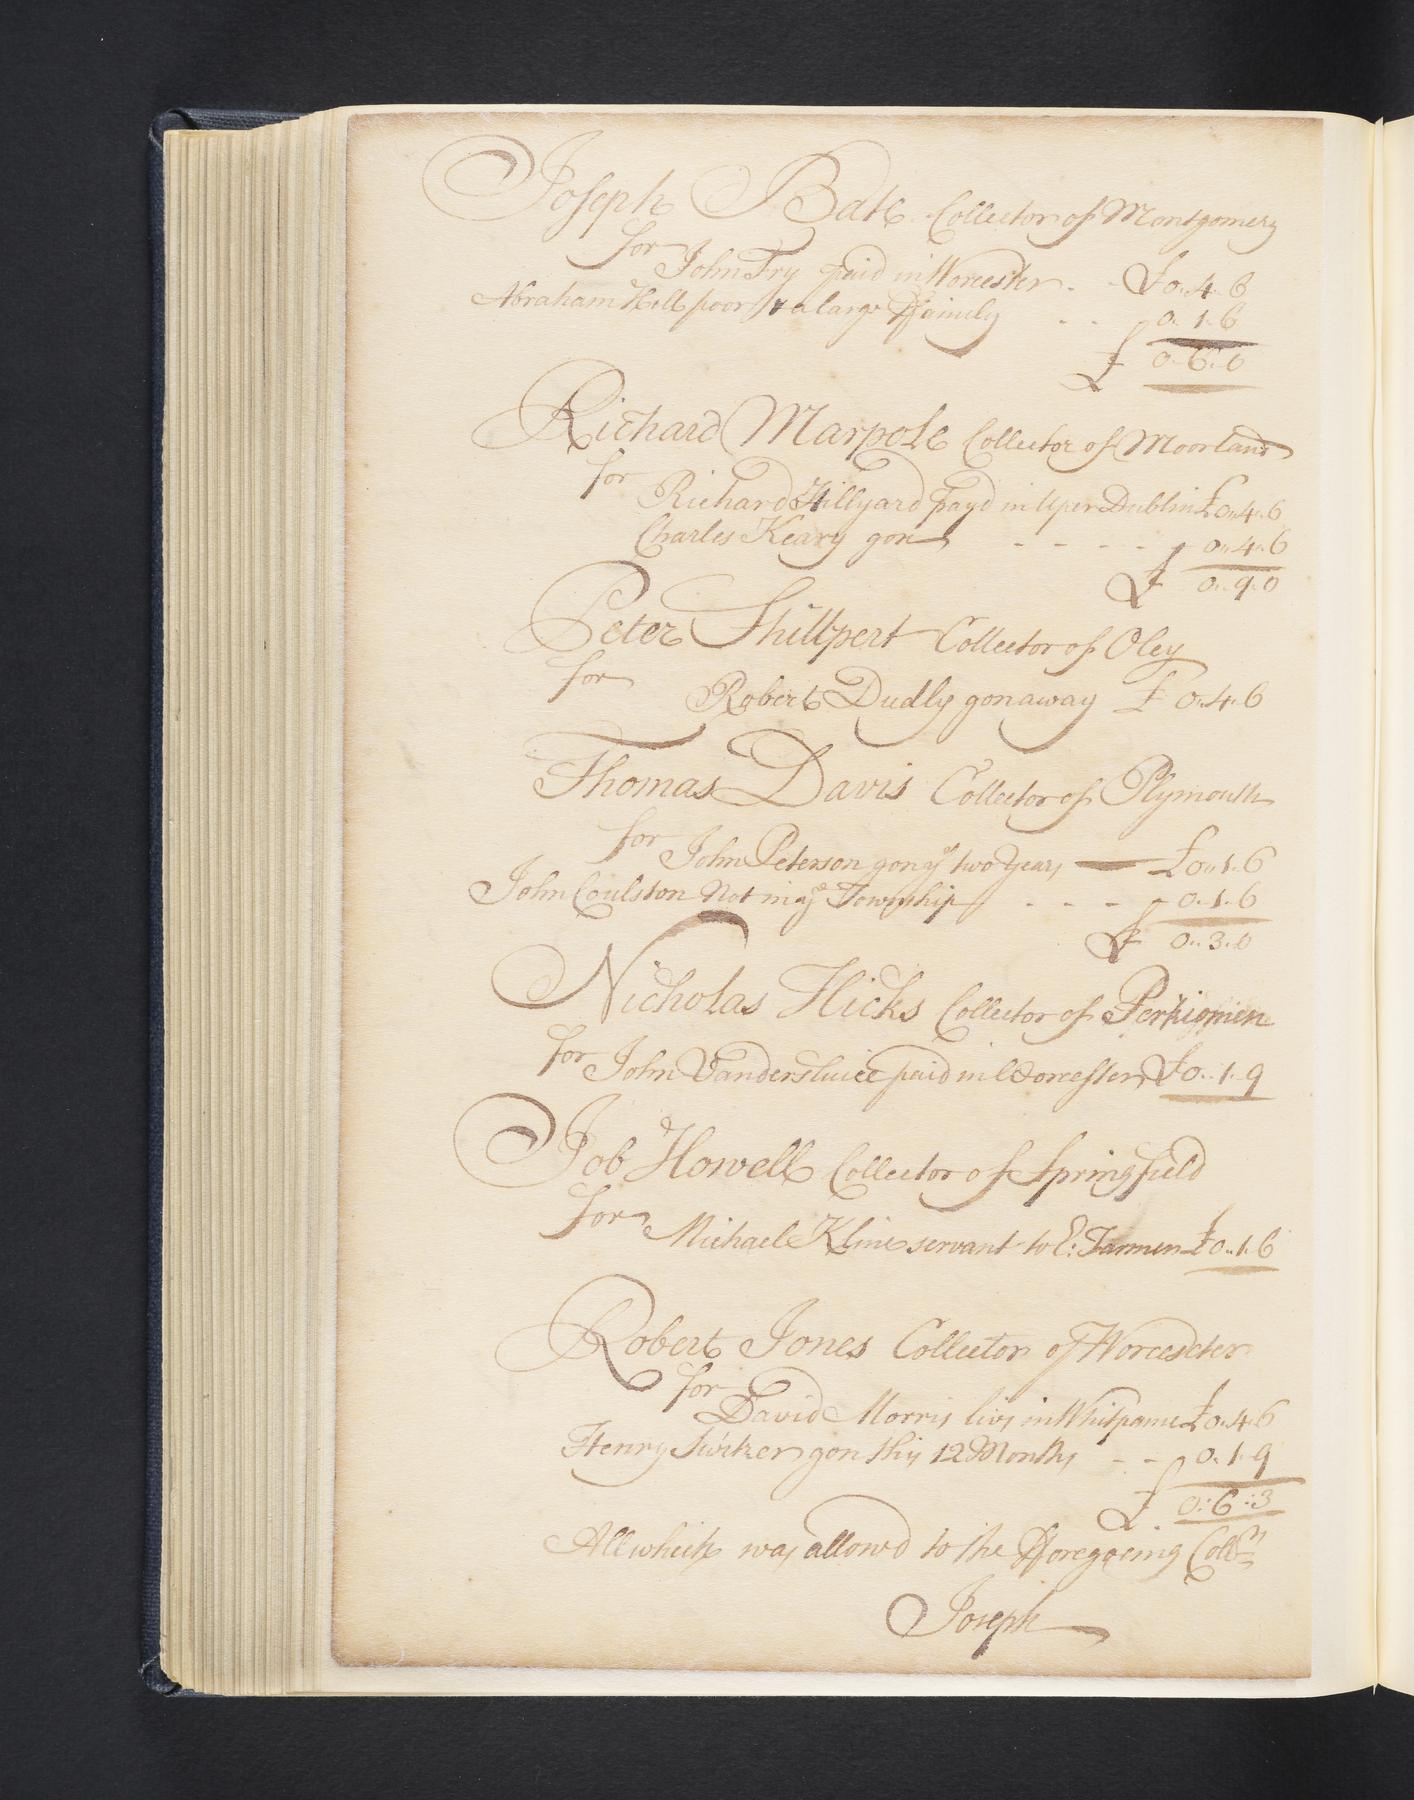 Joseph Bate Collector of Montgomery
for
John Fry paid in Worcester - - £0..4..6
Abraham Hill poor & a large ffamily - - 0..1..6
£ 0..6..0
Richard Marpole Collector of Moorland
for
Richard Hillyard payd in Uper Dublin £0..4..6
Charles Keary gon - - - - 0..4..6
£ 0..9..0
Peter Shillpert Collector of Oley
for
Robert Dudly gon away £ 0..4..6
Thomas Davis Collector of Plymouth
for
John Peterson gon ys two Years — £0..1..6
John Coulston Not in ye Township - - - 0..1..6
£ 0..3..0
Nicholas Hicks Collector of Perkiomien
for John Vandersluice paid in Worcester £0..1..9
Job Howell Collector of Springfield
for
Michael Kline servant to E: £0..1..6
Robert Jones Collector of Worcester
for
David Morris livs in Whitpame £0..4..6
Henry Switzer gon this 12 Months - - 0..1..9
£ 0:6:3
All which was allowd to the fforegoeing Collrs
Joseph